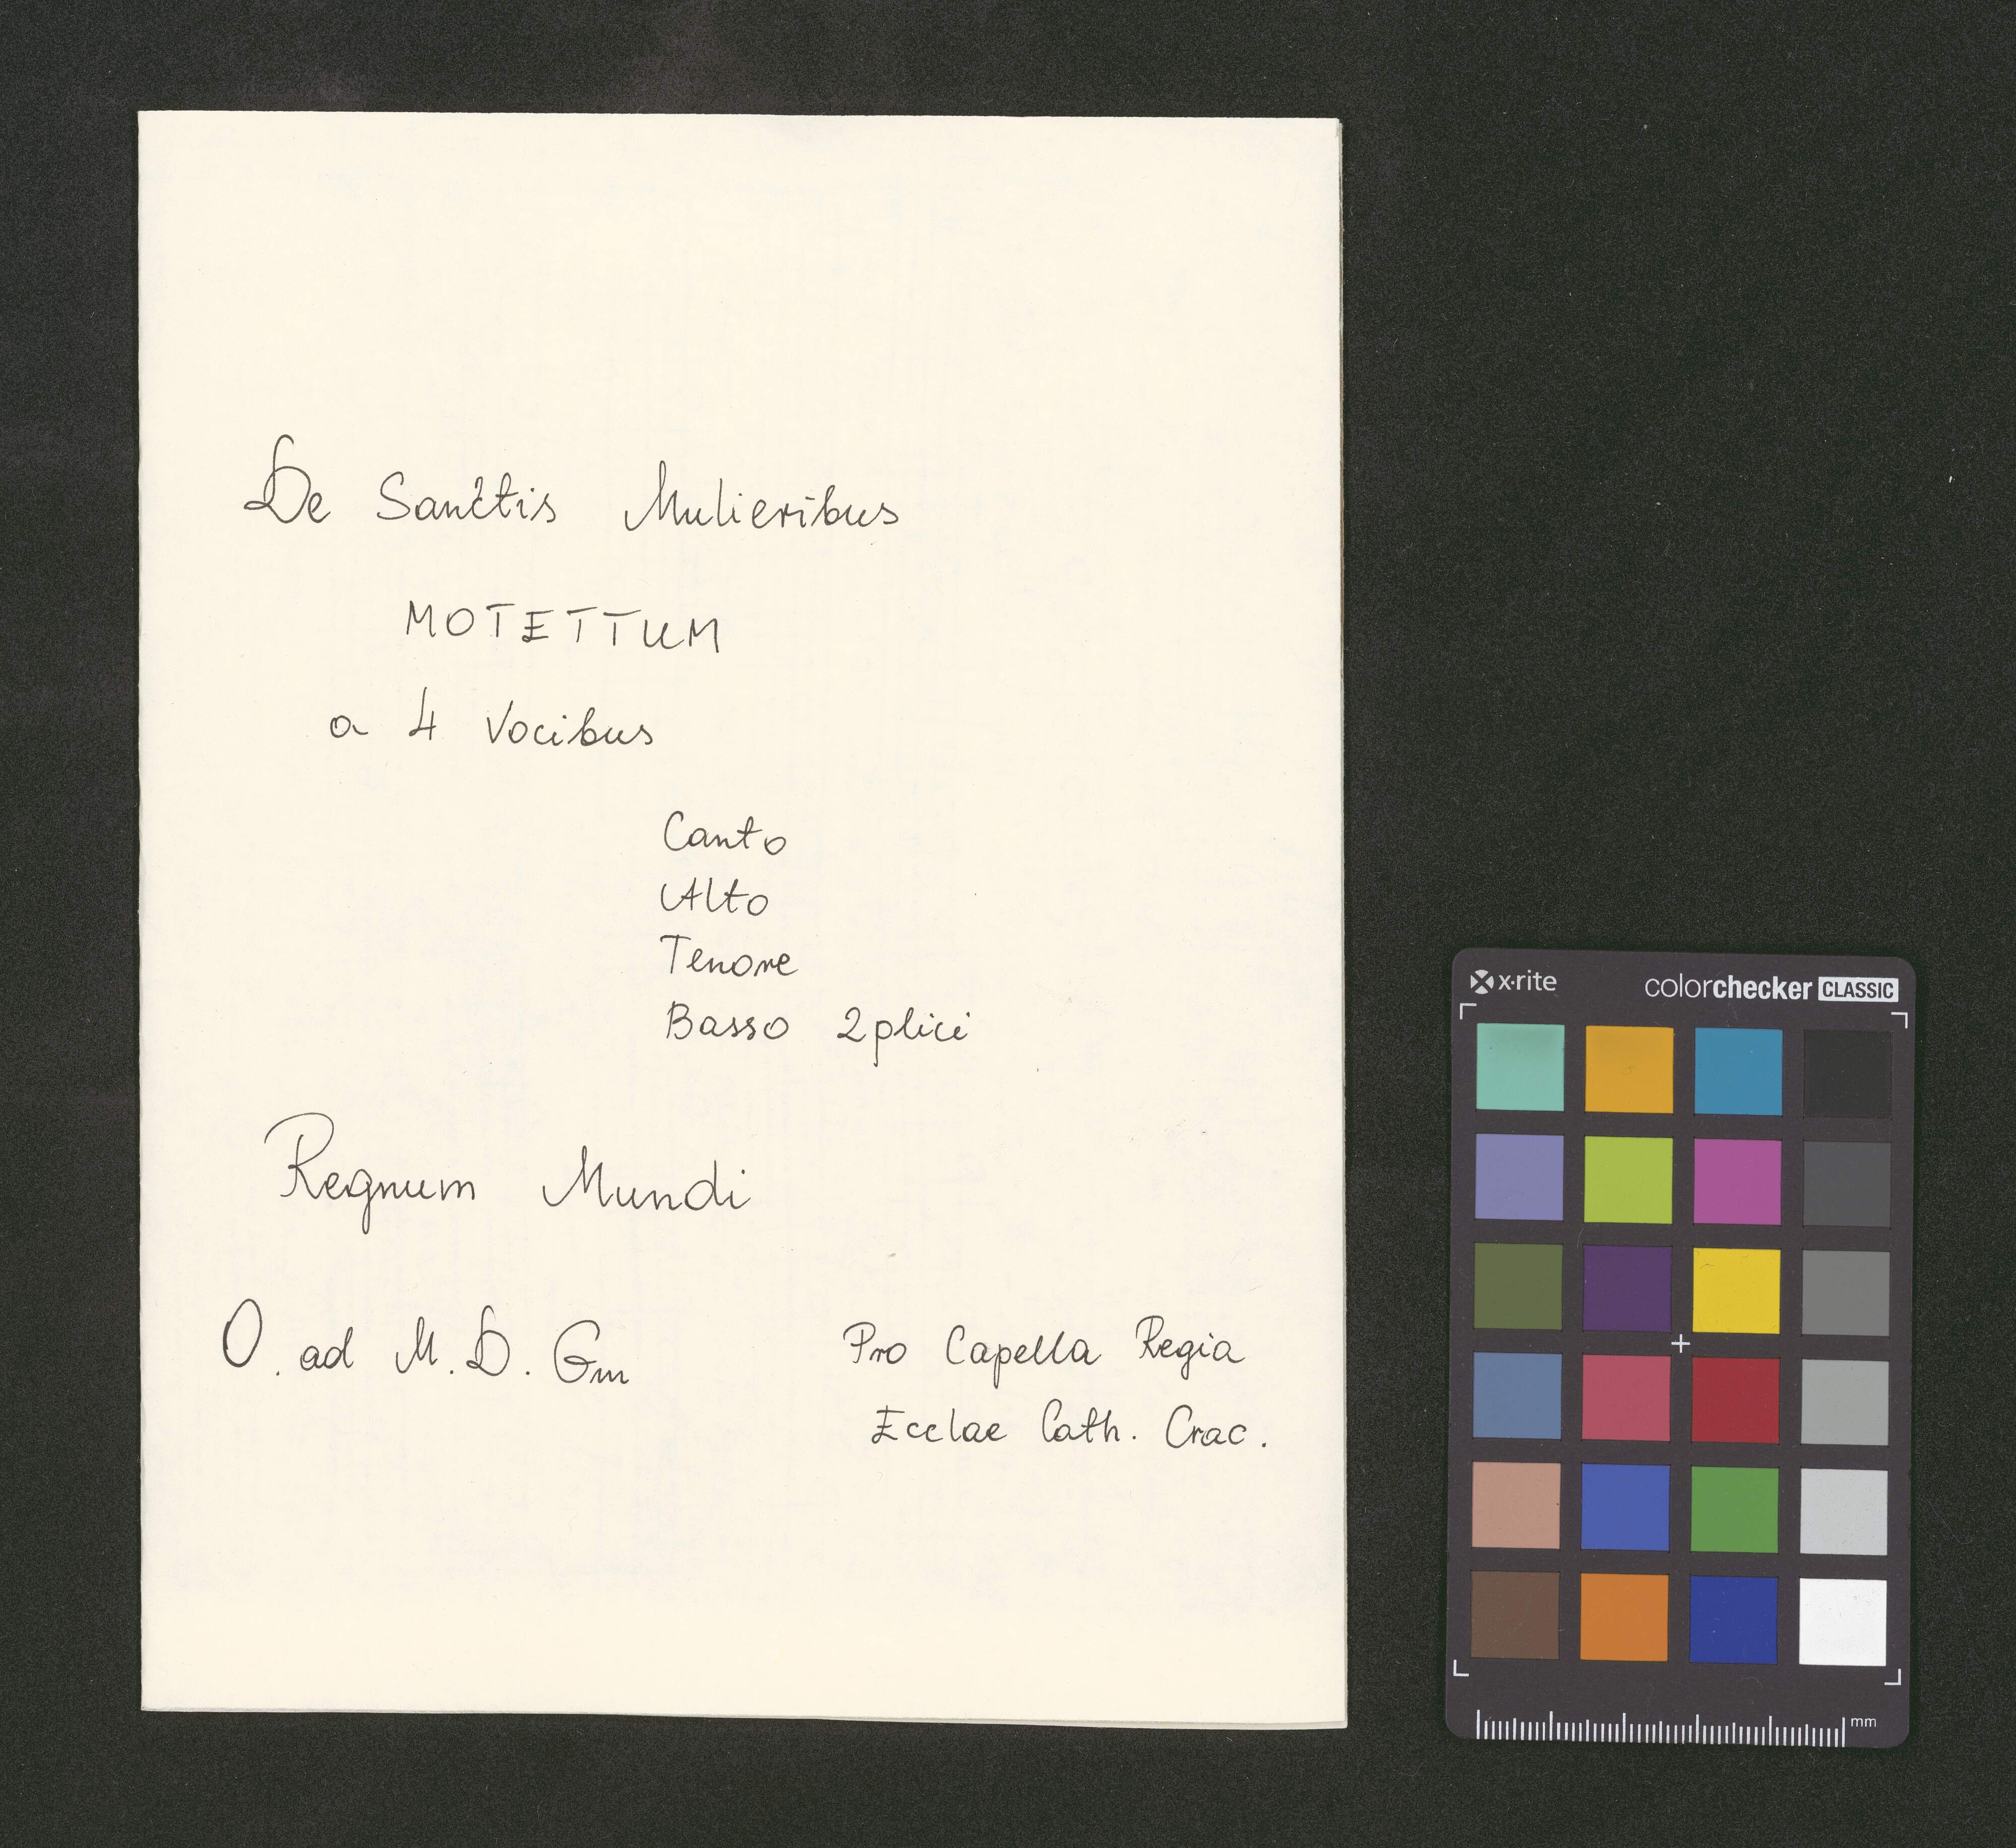 De Sanctis Mulieribus
MOTETTUM
a 4 Vocibus
Canto
Alto
Tenore
Basso 2plici
Regnum Mundi
O. ad M. D. Gm
Pro Capella Regia
Ecclae Cath. Crac.
x·rite
colorchecker CLASSIC
mm